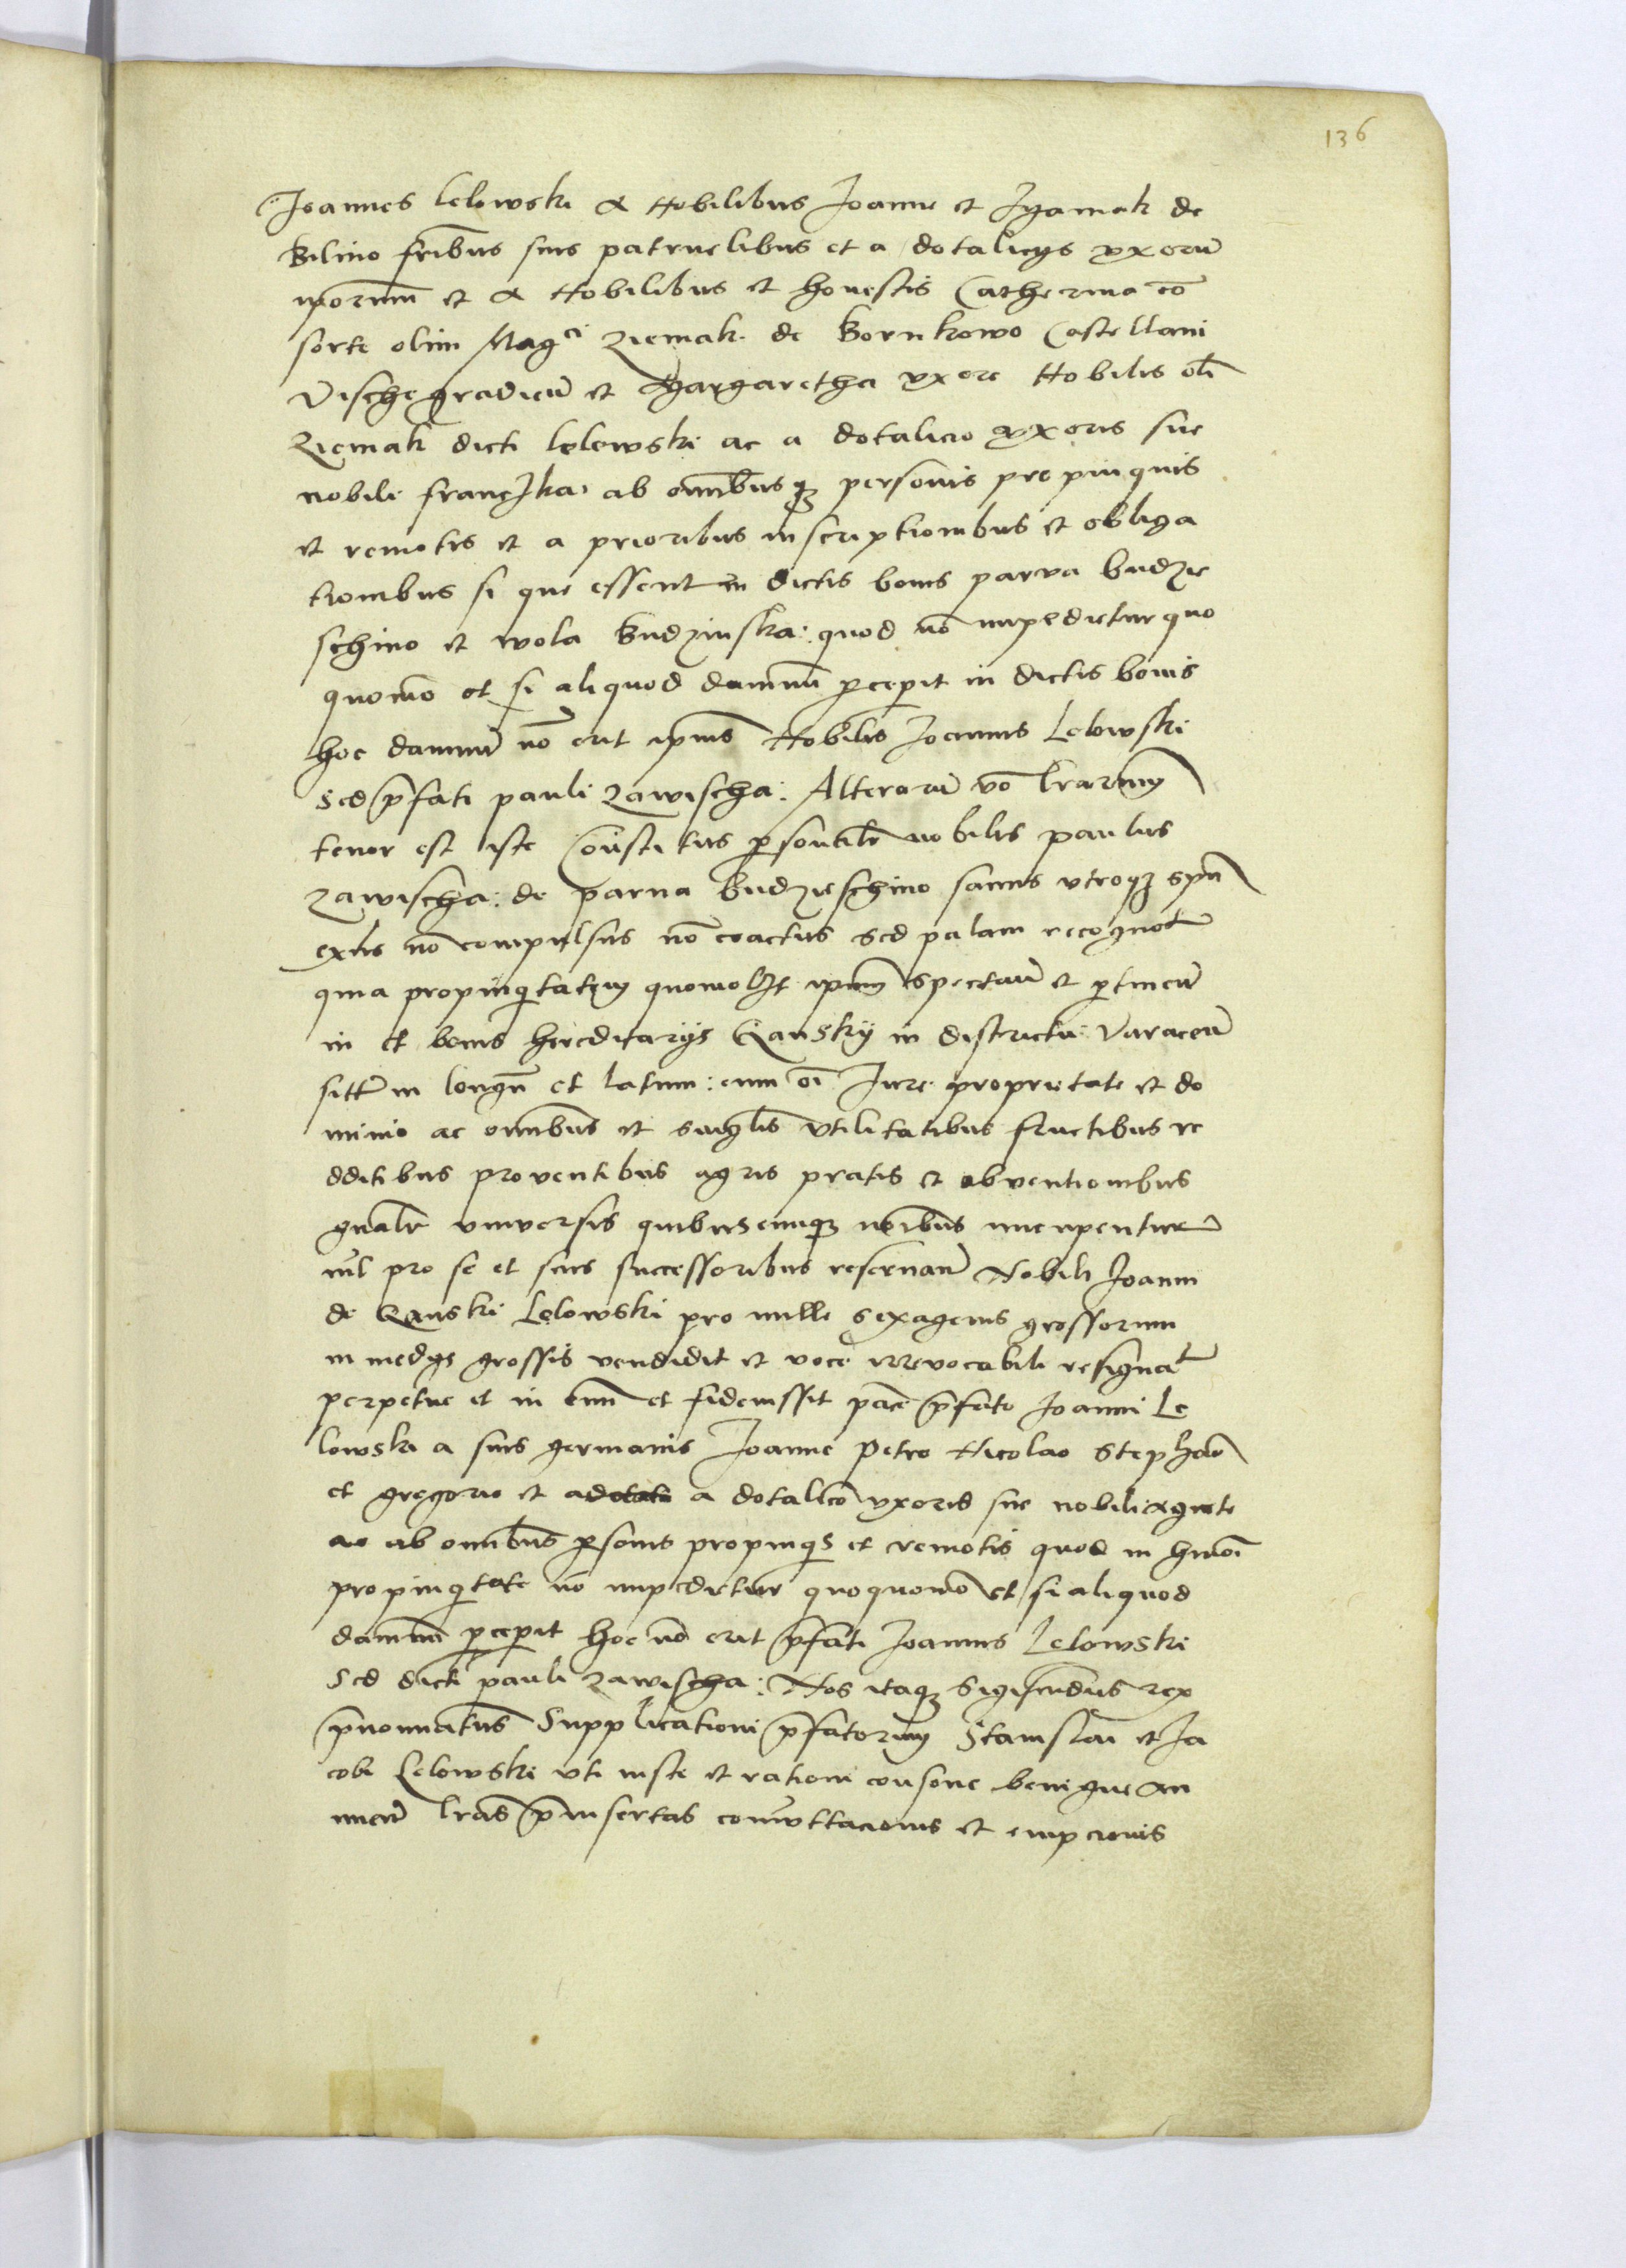 136
Joannes Lelowski & Nobilibus Joanne et Zyamak de
Bilino fribus suis patruelibus et a dotalicys vxorum
ipsorum et & Nobilibus et honestis Catherina con
sorte olim Magci Ziemak de Bornkowo Castellani
Vischegradien et Margaretha vxore Nobilis oli
Ziemak dicti lelowski ac a dotalicio vxoris sue
nobili françzka ab omnibusqz personis propinquis
et remotis et a prioribus inscriptionibus et obliga
tionibus si que essent in dictis bonis parva budzie
schino et wola Budzinska: quod no impedietur quo
quomo et si aliquod damnu percepit in dictis bonis
hoc damnu no erit ipius Nobilis Joannis Lelowski
Sed pfati pauli Zawischa: Alterarum vo lrarum
tenor est iste Constitus psonalr nobilis paulus
Zawischa: de parva Budzieschino sanus vtroqz spu
extis no compulsus no coactus sed palam recognot
quia propinqitatem quomolzt ipum spectan et ptinen
in et bonis hereditarys Qansky in districtu Varacen
sitt in longu et latum: cum oi Jure proprietate et do
minio ac omnibus et singlis vtilitatibus fructibus re
dditibus proventibus agris pratis et obventionibus
gnalr vniversis quibuscumqz noibus nuncupentur
nil pro se et suis successoribus reservan Nobili Joanni
de Qanski Lelowski pro mille sexagenis grossorum
in medys grossis vendidit et voce irrevocabili resignat
perpetue et in evu et fideiussit pace pfato Joanni Le
lowski a suis germanis Joanne Petro Nicolao Stephano
et gregorio et adotato a dotalico vxoris sue nobili agnete
ac ab omnibus psonis propinqis et remotis quod in hmoi
propinqitate no impedietur quoquomo et si aliquod
damnu pcepit hoc no erit pfati Joannis Lelowski
Sed dicti pauli Zawischa: Nos itaqz Sigismudus rex
pnominatus Supplicationi pfatorum Stanislai et Ja
cobi Lelowski vti iuste et rationi consone benigne an
nuen lras pinsertas comuttacionis et empcionis